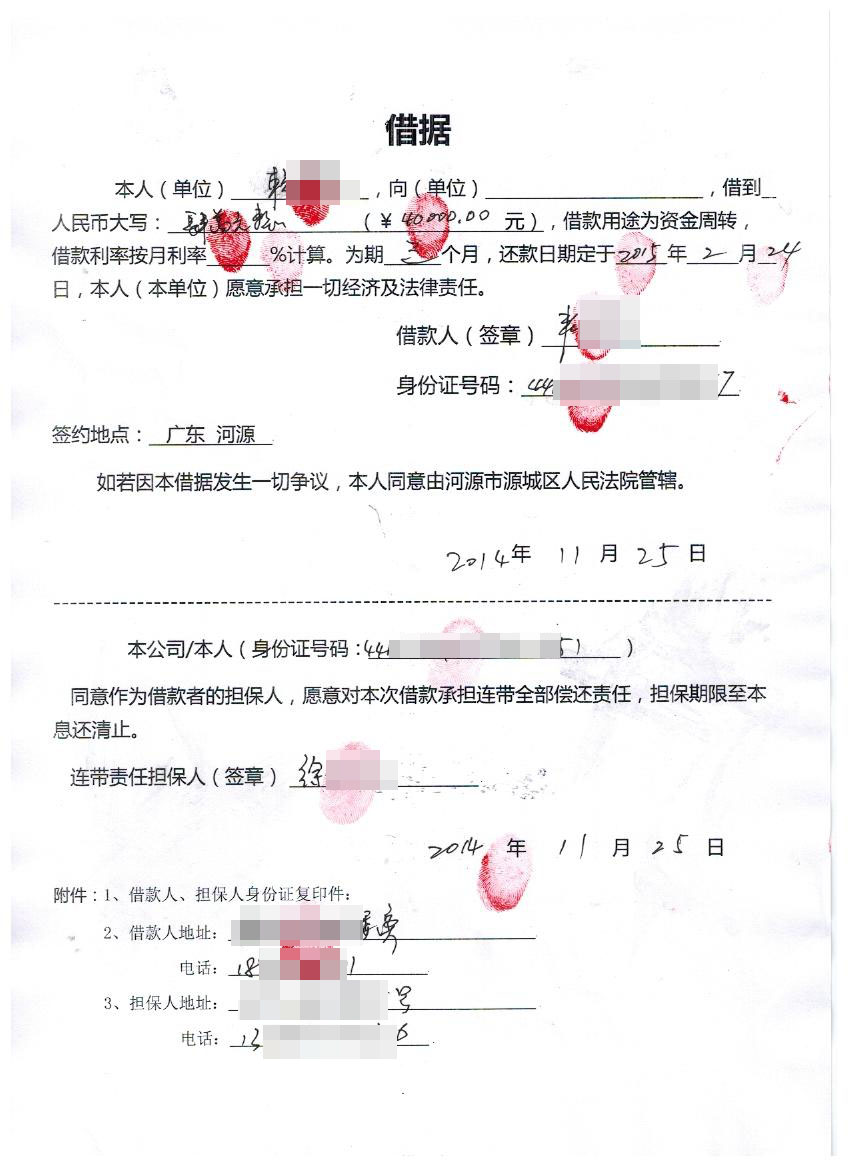 借据
本人（单位）韩，向（单位），借到
人民币大写：肆萬元整（￥40,000.00元），借款用途为资金周转，
借款利率按月利率%计算。为期三个月，还款日期定于2015年2月24
日，本人（本单位）愿意承担一切经济及法律责任。
借款人（签章）
身份证号码：44 7
签约地点：广东 河源
如若因本借据发生一切争议，本人同意由河源市源城区人民法院管辖。
2014年 11月25日
本公司/本人（身份证号码：44 51）
同意作为借款者的担保人，愿意对本次借款承担连带全部偿还责任，担保期限至本
息还清止。
连带责任担保人（签章）徐
2014年11月25日
附件：1、借款人、担保人身份证复印件：
2、借款人地址：
电话：18 1
3、担保人地址：号
电话：13 6